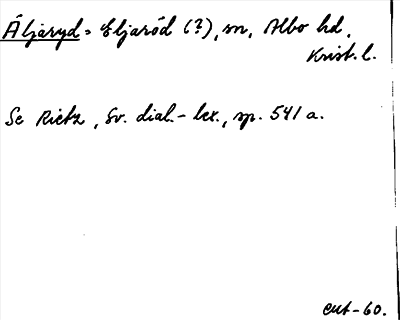 Äljaryd = Eljaröd (?), sn, Albo hd.
Krist. l.
Se Rietz, Sv. dial.-lex., sp. 541 a.
-60.